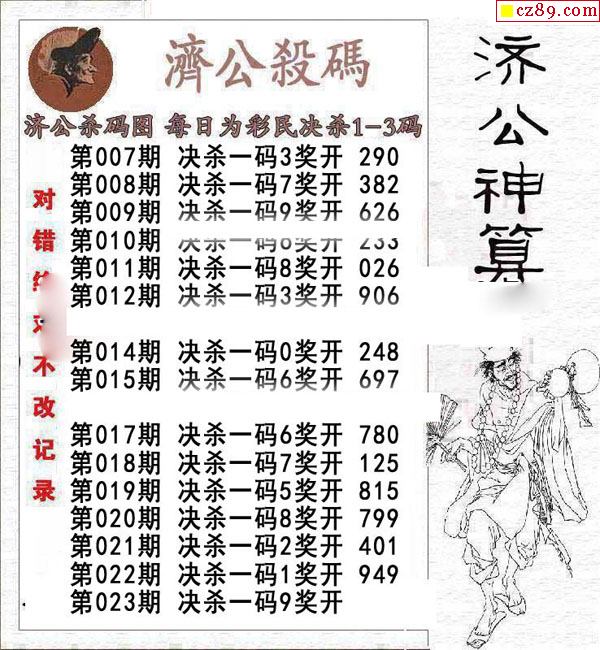 cz89.com
濟公殺碼
济公杀码图 每日为彩民决杀1-3码
第007期 决杀一码3奖开 290
第008期 决杀一码7奖开 382
第009期 决杀一码9奖开 626
第010期 决杀一码 奖开 233
第011期 决杀一码8奖开 026
第012期 决杀一码3奖开 906
第014期 决杀一码0奖开 248
第015期 决杀一码6奖开 697
第017期 决杀一码6奖开 780
第018期 决杀一码7奖开 125
第019期 决杀一码5奖开 815
第020期 决杀一码8奖开 799
第021期 决杀一码2奖开 401
第022期 决杀一码1奖开 949
第023期 决杀一码9奖开
对错 不改记录
济公神算